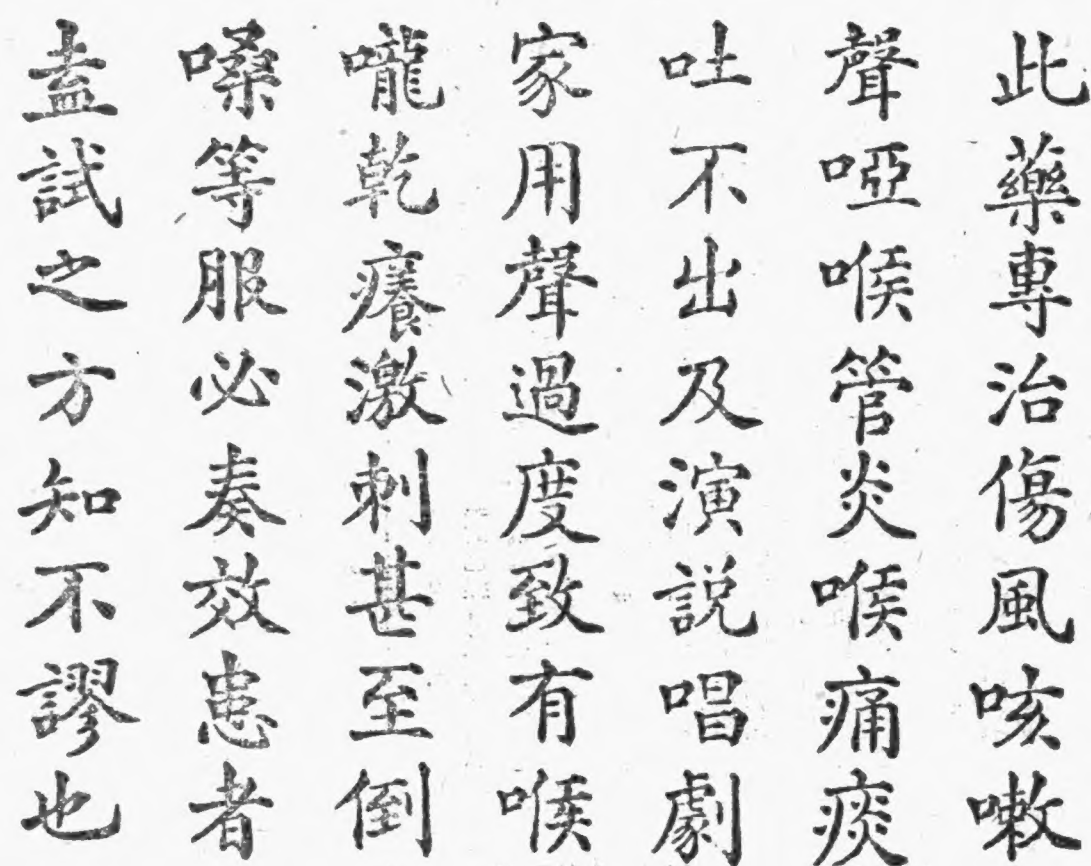 此藥專治傷風咳嗽
聲啞喉管炎喉痛痰
吐不出及演説唱劇
家用聲過度致有喉
嚨乾癢激刺甚至倒
嗓等服必奏效患者
盍試之方知不謬也